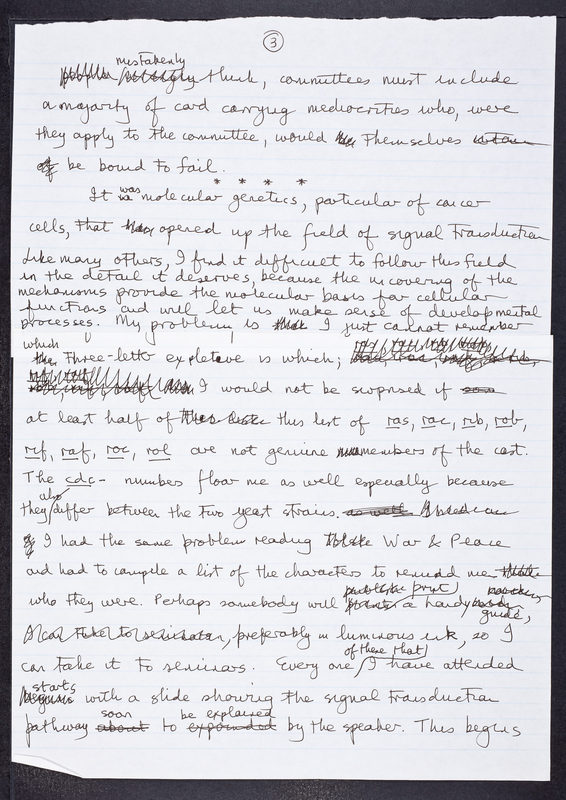 3
mistakenly
think, committees must include
a majority of card carrying mediocrities who, were
they apply to the committee, would themselves
be bound to fail.
* * * *
It was molecular genetics, particular of cancer
cells, that opened up the field of signal transduction
Like many others, I find it difficult to follow this field
in the detail it deserves, because the uncovering of the
mechanisms provide the molecular basis for cellular
functions and will let us make sense of developmental
processes. My problem is I just cannot remember
which
three-letter expletive is which;
I would not be surprised if
at least half of this list of ras, rac, rib, rob,
rif, raf, roc, rol are not genuine members of the cast.
The cdc- numbers floor me as well especially because
they also differ between the two yeast strains.
I had the same problem reading War & Peace
and had to compile a list of the characters to remind me
who they were. Perhaps somebody will publish (print) a handy guide,
preferably in luminous ink, so I
can take it to seminars. Every one of these that I have attended
starts with a slide showing the signal transduction
pathway soon to be explained by the speaker. This begins